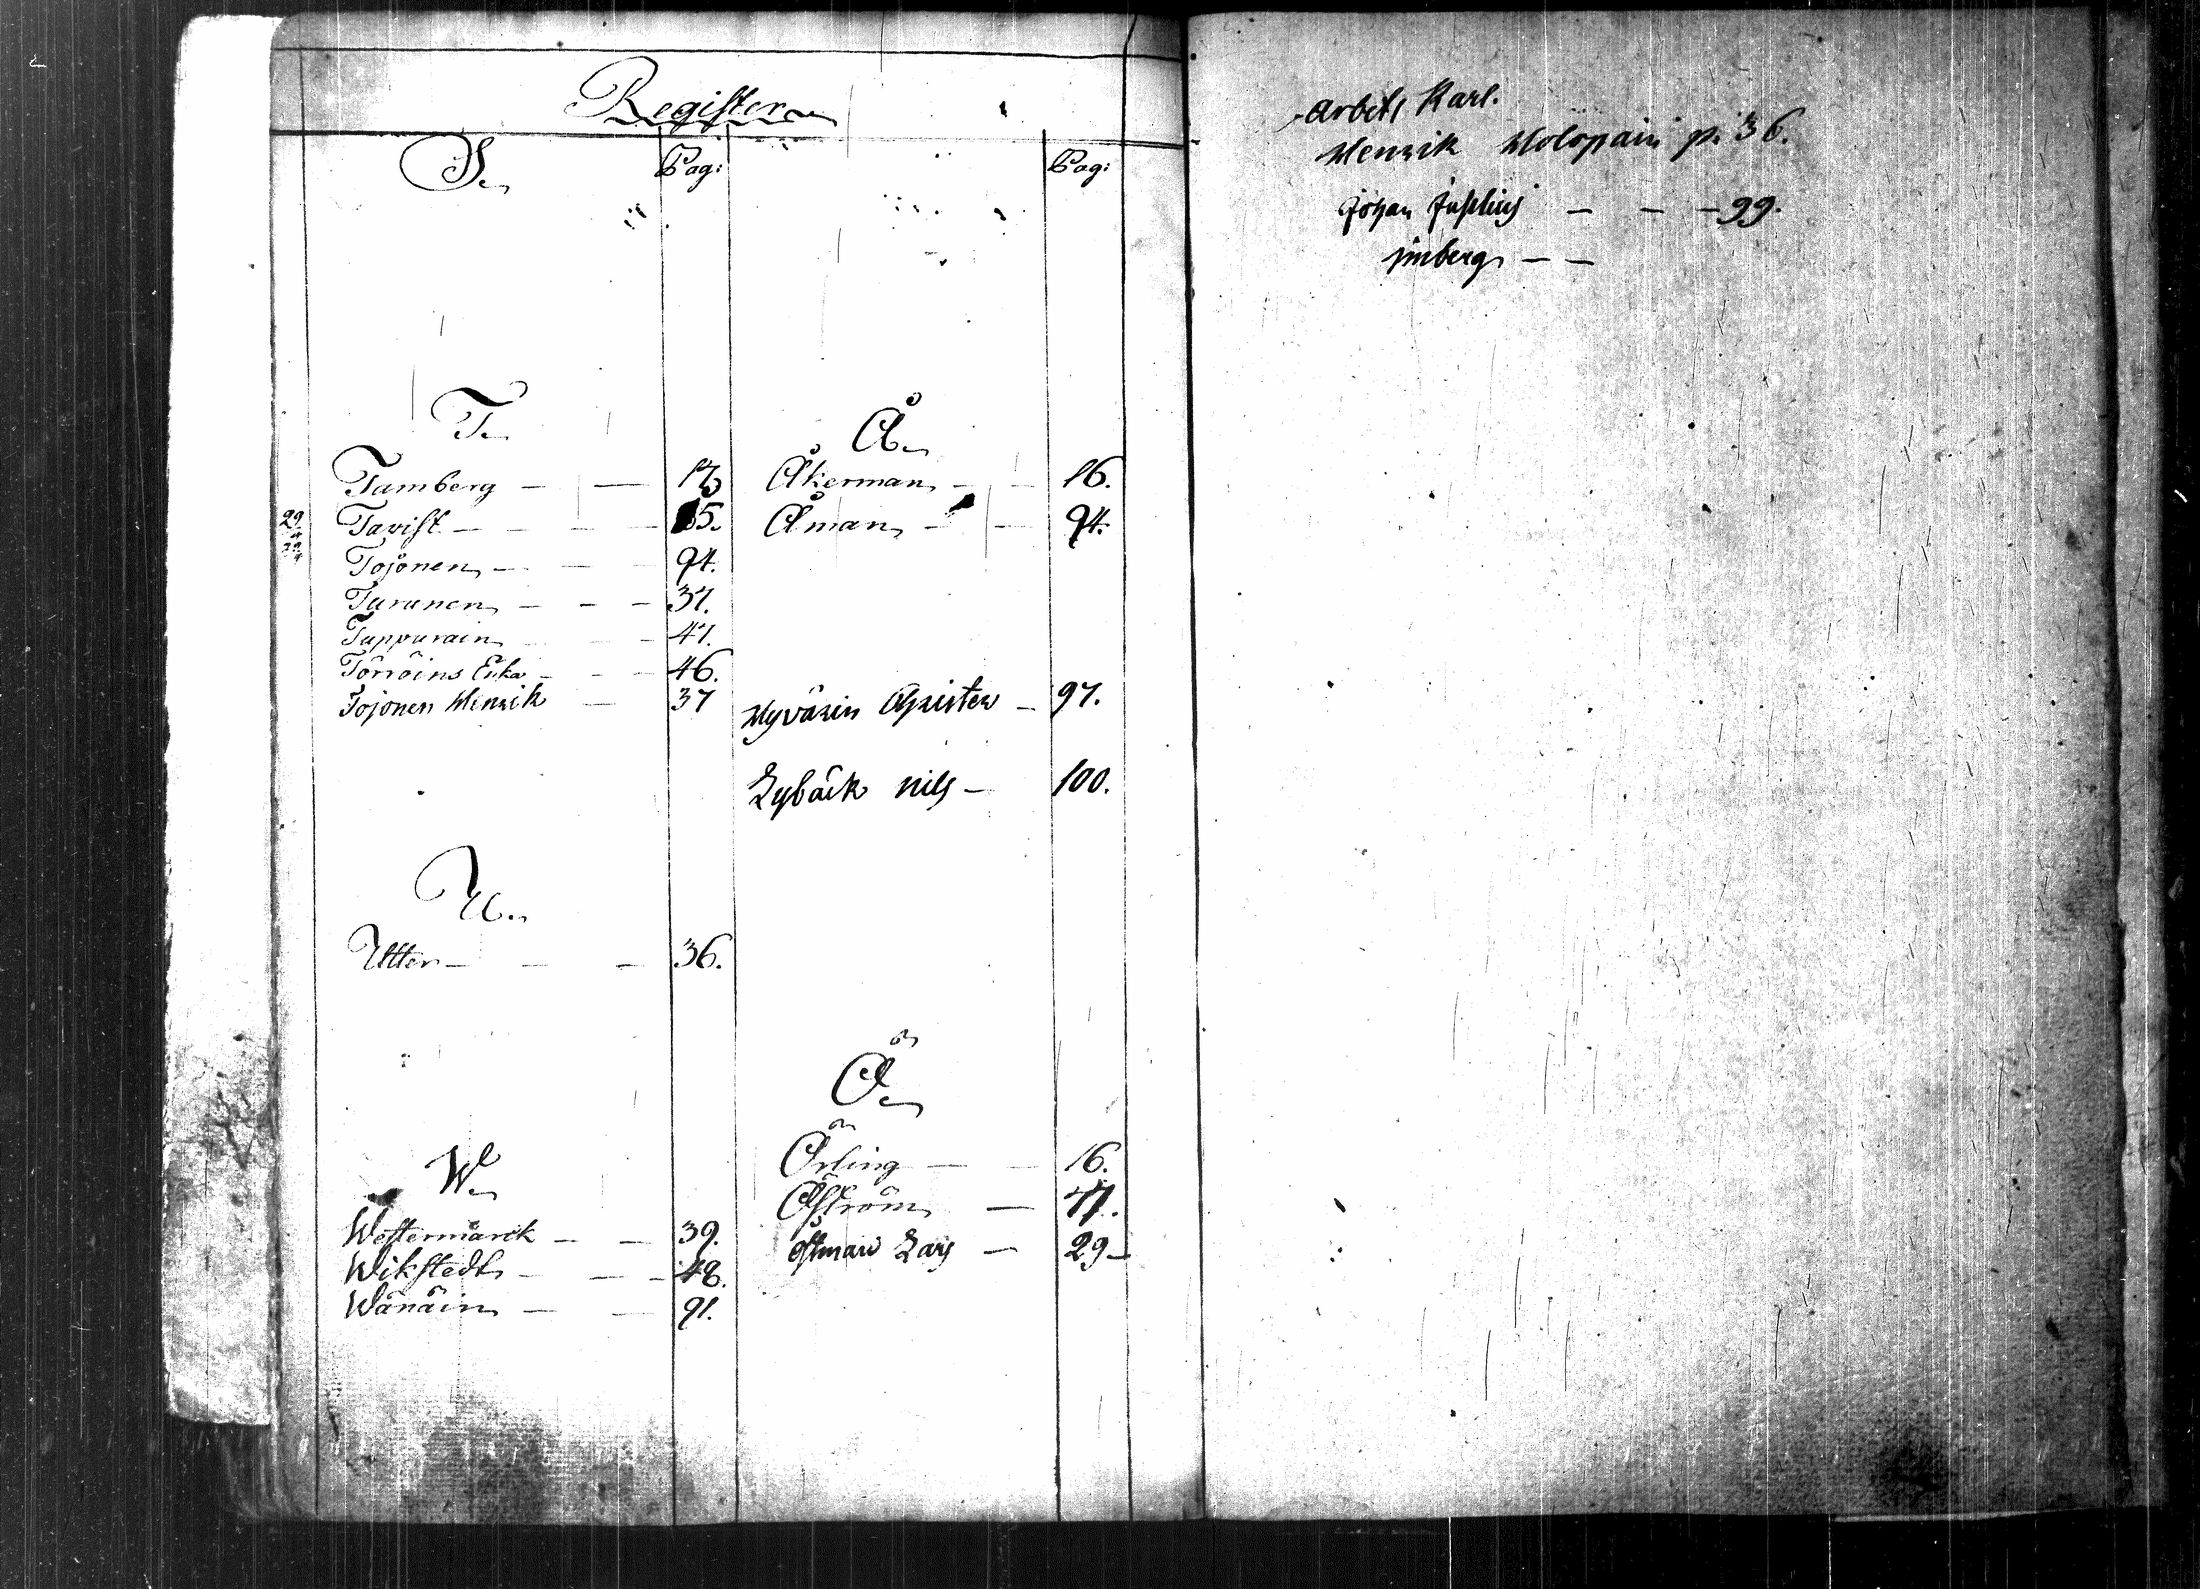 Register
S.
Pag:
Pag:
T.
Tamberg — — 13
Tavist — — — 15.
Tojonen — — — 94.
Turunen — — — 37.
Tappurain — — 47.
Törröins Erka — — 46.
Tojonen Henrik — 37
U.
Utter — — — 36.
W.
Westermarck — — 39.
Wikstedt — — — 48.
Wänäin — — 91.
Å.
Åkerman — — 16.
Åman — — 94.
Hyvärin Christer — 97.
Lybäck Nils — 100.
Ö.
Örling — — 16.
Öström — 47.
Östman Lars — 29 —
29
4
29
4
Arbets Karl.
Henrik Holopain p. 36.
Johan — — — 99.